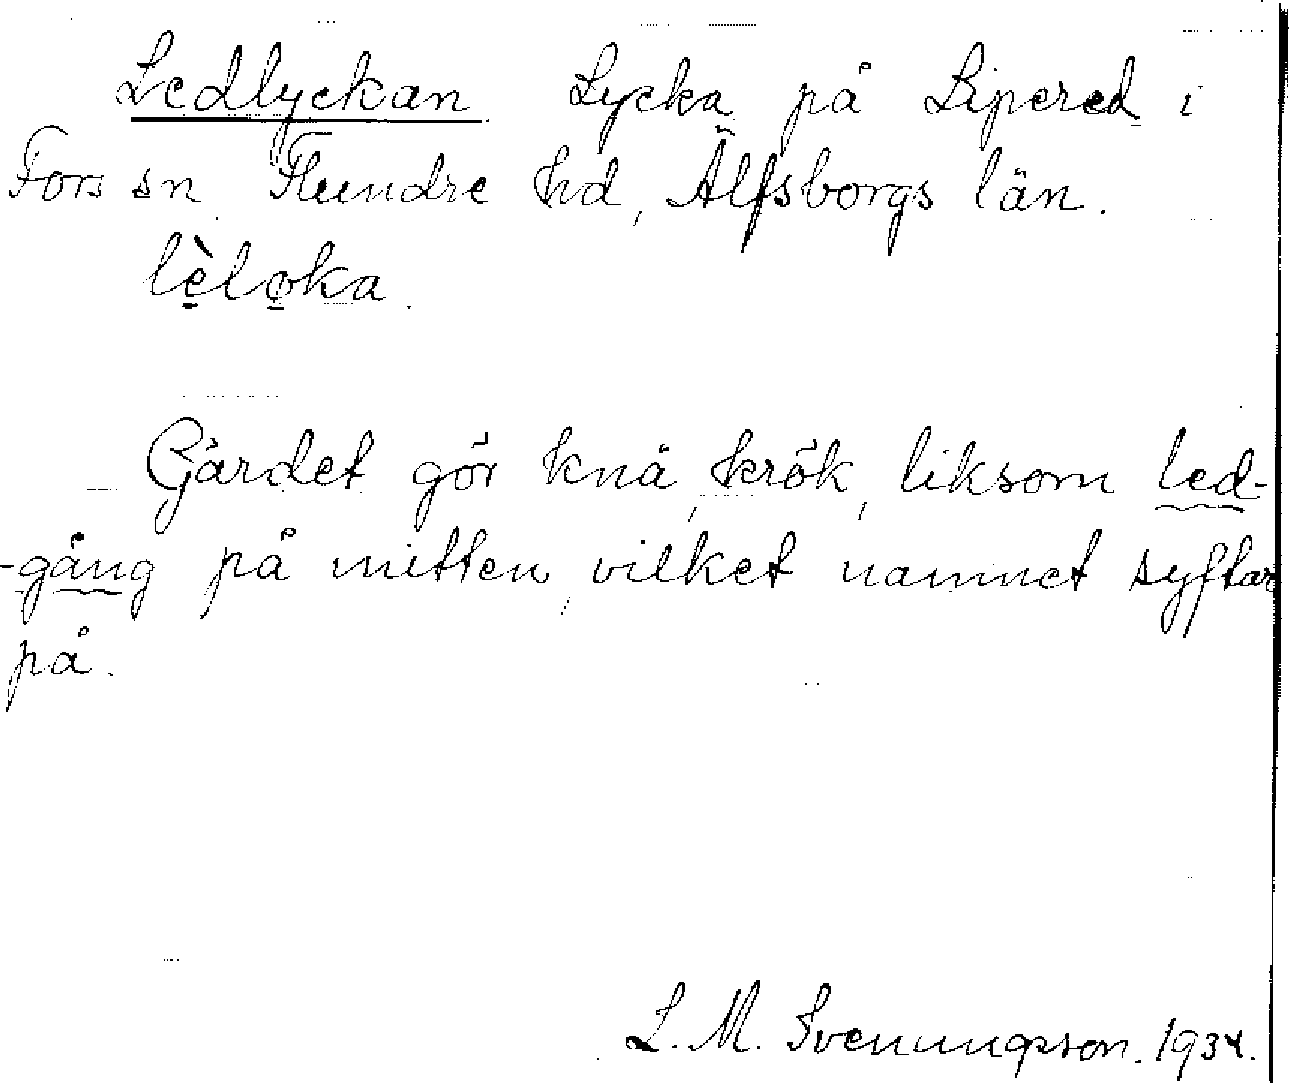 Ledlyckan Lycka på Lipered i
Fors sn Flundre hd, Älfsborgs län.
lèlo̱ka.
Gärdet gör knä, krök, liksom led-
-gång på mitten, vilket namnet syftar
på.
L. M. Svenungson. 1934.